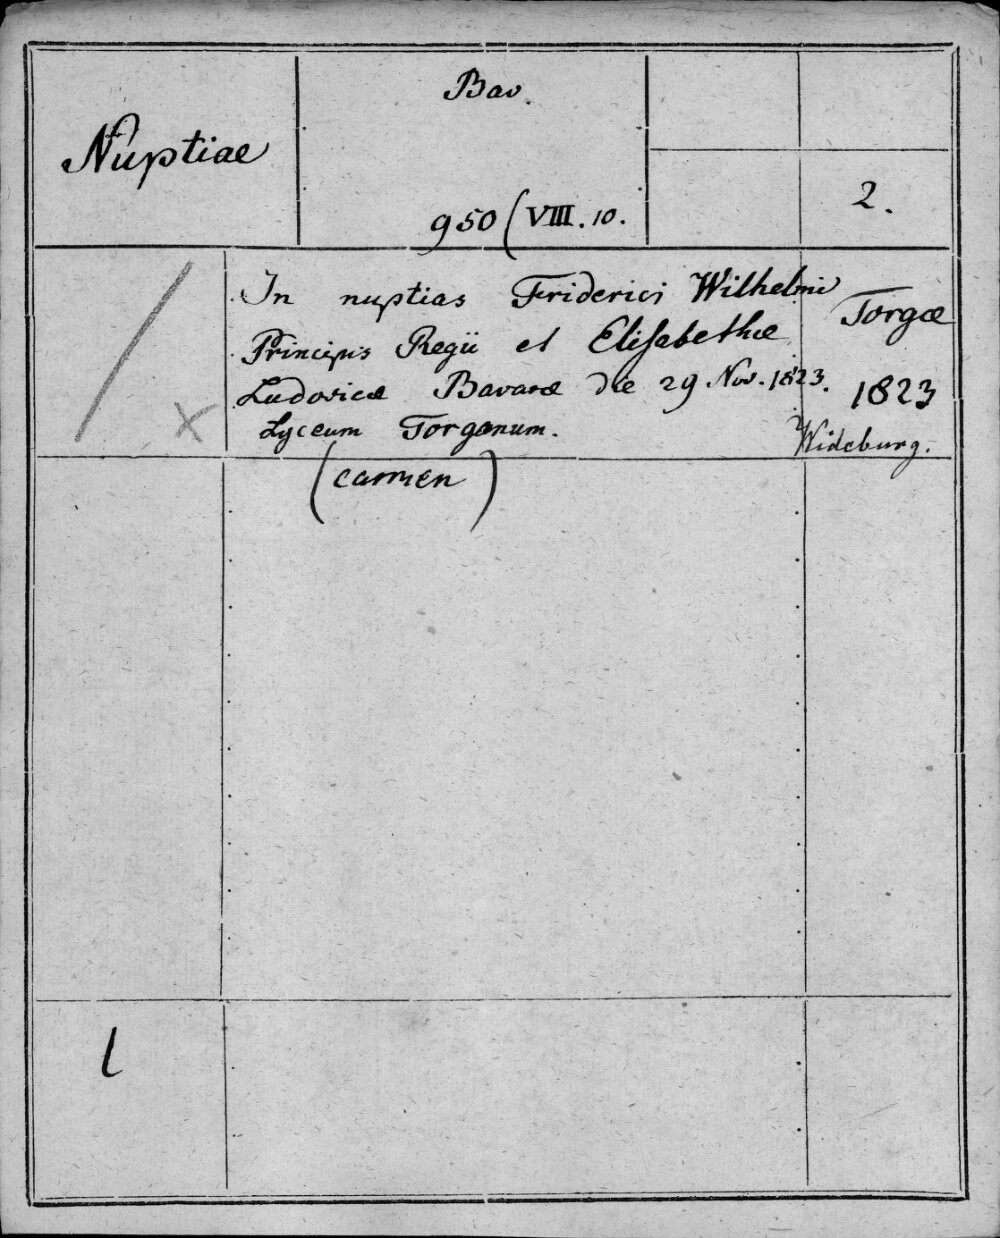 Nuptiae
Bav.
950 ( VIII. 10.
2.
In nuptias Friderici Wilhelmi
Principis Regii et Elisabethæ
Ludovicæ Bavaræ die 29 Nov. 1823.
Lyceum Torganum.
(carmen)
Torgæ
1823
Wideburg.